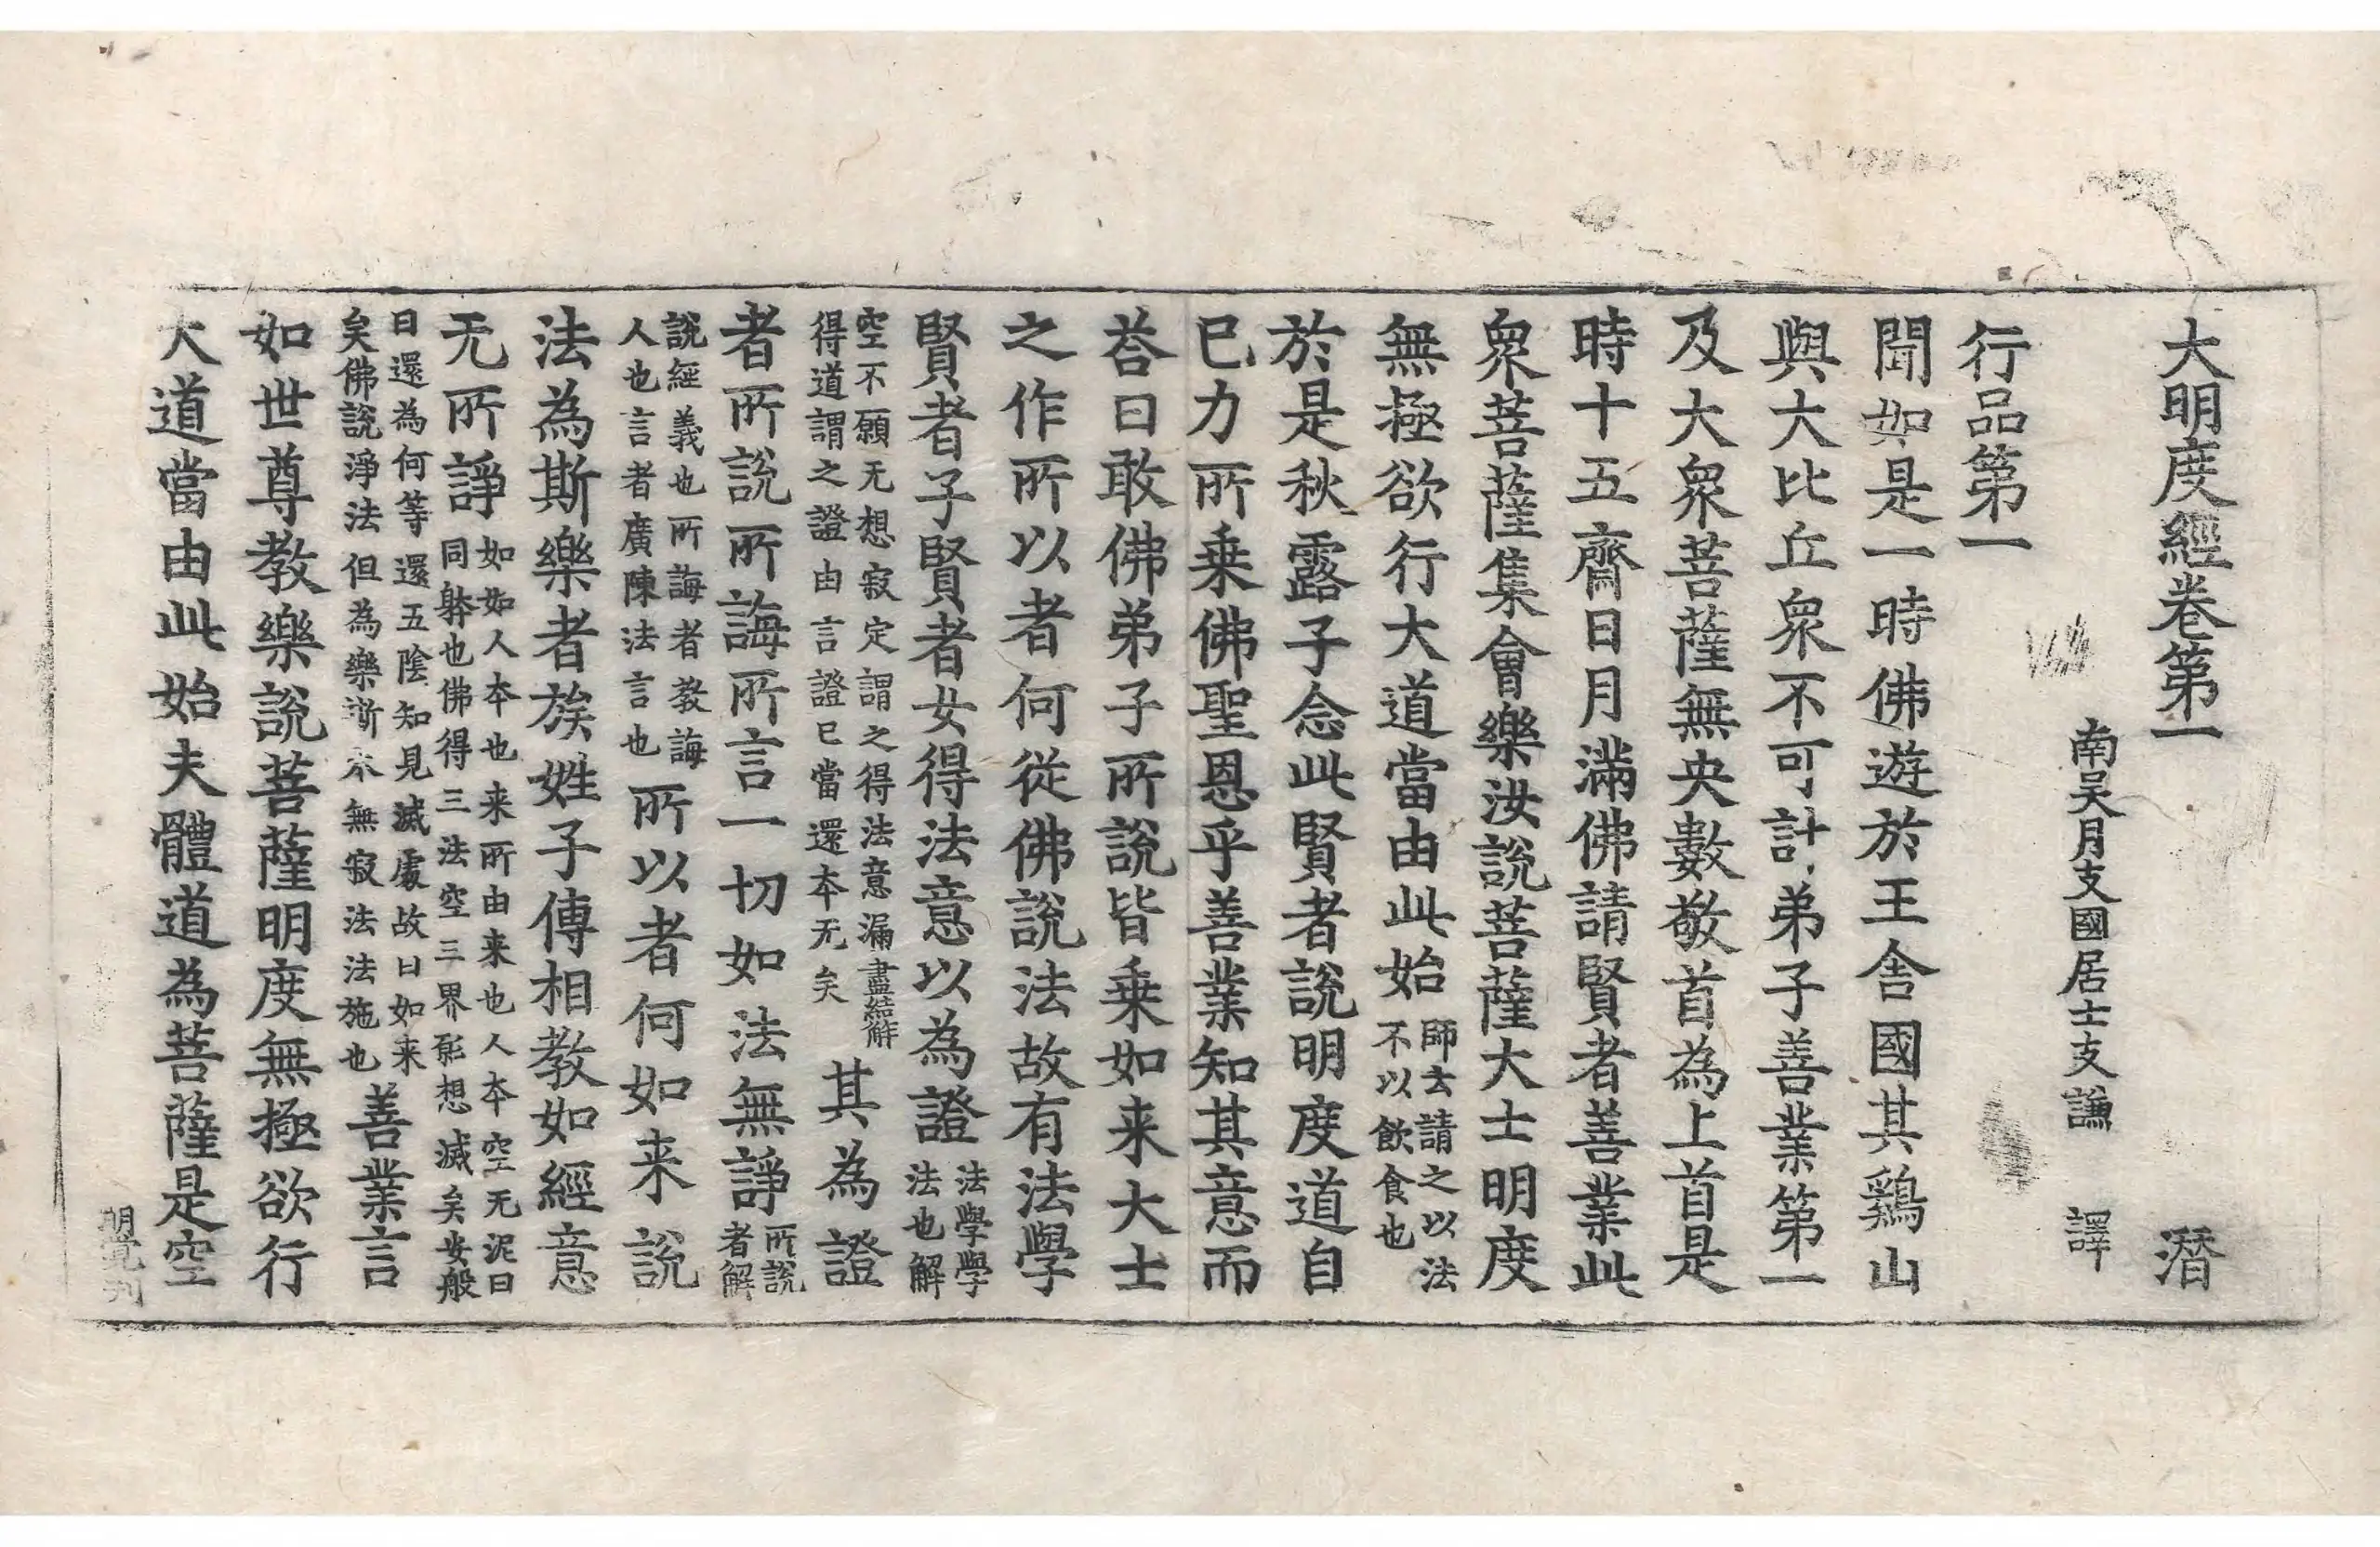 大明度經卷第一　　潛
南吳月支國居士支謙　譯
行品第一
聞如是一時佛遊於王舍國其鷄山
與大比丘衆不可計弟子善業第一
及大衆菩薩無央數敬首為上首是
時十五齋日月滿佛請賢者善業此
衆菩薩集會樂汝說菩薩大士明度
無極欲行大道當由此始
師古請之以法
不以飲食也
於是秋露子念此賢者說明度道自
已力所乗佛聖恩乎善業知其意而
荅曰敢佛弟子所說皆乗如来大士
之作所以者何從佛說法故有法學
賢者子賢者女得法意以為證
法學學
法也解
空不願无想寂定謂之得法意漏盡結解
得道謂之證由言證已當還夲无矣
其為證
者所說所誨所言一切如法無諍
所說
者解
說經義也所誨者教誨
人也言者廣陳法言也
所以者何如来說
法為斯樂者族姓子傳相教如經意
无所諍
如如人夲也来所由来也人夲空无泥曰
同躰也佛得三法空三界髟想滅矣安般
曰還為何等還五陰知見滅處故曰如来
矣佛說淨法但為樂漸夲無寂法法施也
善業言
如世尊教樂說菩薩明度無極欲行
大道當由此始夫體道為菩薩是空
明覺刋